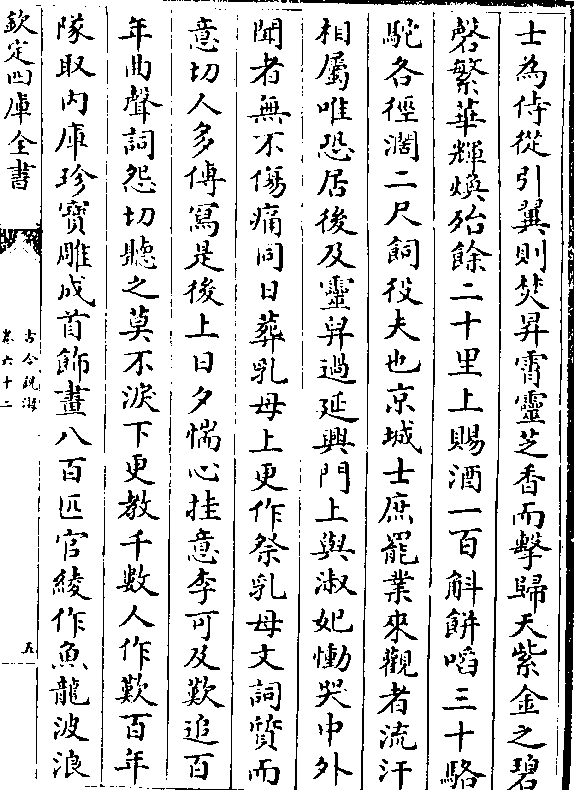 士為侍從引翼則焚昇霄靈芝香而擊歸天紫金之碧
磬繁華輝煥殆餘二十里上賜酒一百斛餅㗖三十駱
駝各徑濶二尺飼役夫也京城士庶罷業來觀者流汗
相屬唯恐居後及靈轝過延興門上與淑妃慟哭中外
聞者無不傷痛同日葬乳母上更作祭乳母文詞質而
意切人多傳寫是後上日夕惴心挂意李可及歎追百
年曲聲詞怨切聽之莫不淚下更教千數人作歎百年
隊取内庫珍寳雕成首飾畫八百匹官綾作魚龍波浪
欽定四庫全書
古今說海
卷六十二
五